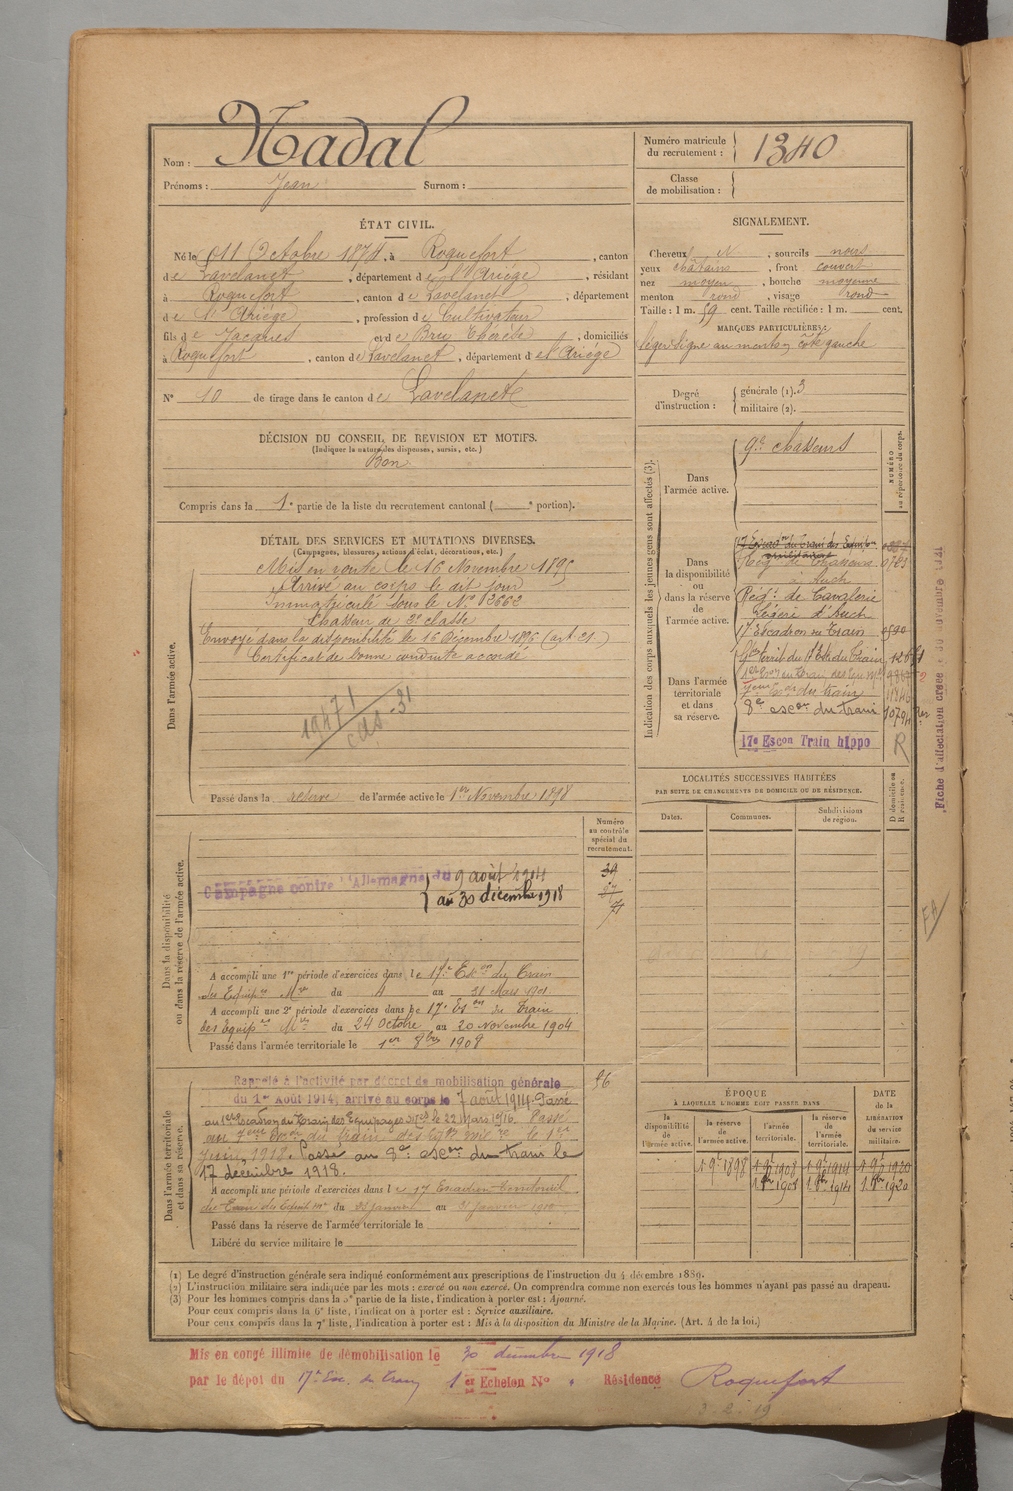 Nom : Nadal
Prénoms : Jean Surnom :
Numéro matricule du recrutement : 1340
Classe de mobilisation :
ÉTAT CIVIL.
Né le 11 Octobre 1874, à Roquefort, canton
de Lavelanet, département de l'Ariège, résidant
à Roquefort, canton de Lavelanet, département
de l'Ariège, profession de Cultivateur
fils de Jacques et de Bru Thérèse, domiciliés
à Roquefort, canton de Lavelanet, département de l'Ariège
N° 10 de tirage dans le canton de Lavelanet
SIGNALEMENT.
Cheveux N, sourcils noirs
yeux châtains, front couvert
nez moyen, bouche moyenne
menton rond, visage rond
Taille : 1 m. 59 cent. Taille rectifiée : 1 m. cent.
MARQUES PARTICULIÈRES :
léger signe au menton côté gauche
Degré d'instruction : générale (1). 3
militaire (2).
DÉCISION DU CONSEIL DE REVISION ET MOTIFS.
(Indiquer la nature des dispenses, sursis, etc.)
Bon
Compris dans la 1e partie de la liste du recrutement cantonal ( e portion).
DÉTAIL DES SERVICES ET MUTATIONS DIVERSES.
(Campagnes, blessures, actions d'éclat, décorations, etc.)
Dans l'armée active.
Mis en route le 16 Novembre 1895
Arrivé au corps le dit jour
Immatriculé sous le No 2662
Chasseur de 2e classe
Envoyé dans la disponibilité le 16 Décembre 1896 (art 21.)
Certificat de bonne conduite accordé
19471
Passé dans la réserve de l'armée active le 1er Novembre 1898
Indication des corps auxquels les jeunes gens sont affectés (3).
NUMÉRO au répertoire du corps.
Dans l'armée active.
9e Chasseurs
Dans la disponibilité ou dans la réserve de l'armée active.
17 Escadron du Train des Equip
Rég. de Chasseurs
à Auch
Régt de Cavalerie
Légère d'Auch
17 Escadron du Train
Dans l'armée territoriale et dans sa réserve.
8e escon du train
17e Escon Train hippo R
Fiche d'affectation créée le 30 novembre 1921
FA
LOCALITÉS SUCCESSIVES HABITÉES
PAR SUITE DE CHANGEMENTS DE DOMICILE OU DE RÉSIDENCE.
Dates. Communes. Subdivisions de région. D domicile ou R résidence.
Numéro au contrôle spécial du recrutement.
39
57
71
Dans la disponibilité ou dans la réserve de l'armée active.
Campagne contre l'Allemagne du 9 août 1914
au 30 décembre 1918
A accompli une 1re période d'exercices dans le 17e Eson du Train
des Equipes Mres du 4 au 31 Mars 1901
A accompli une 2e période d'exercices dans le 17e Eson du Train
des Equipes Mres du 24 Octobre au 20 Novembre 1904
Passé dans l'armée territoriale le 1er 8bre 1908
Dans l'armée territoriale et dans sa réserve.
Rappelé à l'activité par décret de mobilisation générale
du 1er Août 1914, arrivé au corps le 7 août 1914. Passé
au Escadron du Train des Equipages le 22 Mars 1916. Passé
le 1er
Juin 1918. Passé au 8e escon du train le
17 décembre 1918.
96
A accompli une période d'exercices dans le 17 Escadron Territorial
du Train des Equip. Mres du Janvier au Janvier 1910
Passé dans la réserve de l'armée territoriale le
Libéré du service militaire le
ÉPOQUE
À LAQUELLE L'HOMME DOIT PASSER DANS
la disponibilité de l'armée active. la réserve de l'armée active. l'armée territoriale. la réserve de l'armée territoriale.
DATE de la LIBÉRATION du service militaire.
1 9bre 1898 1 9bre 1908 1 9bre 1914 1 9bre 1920
1 8bre 1908 1 8bre 1914 1 8bre 1920
(1) Le degré d'instruction générale sera indiqué conformément aux prescriptions de l'instruction du 4 décembre 1889.
(2) L'instruction militaire sera indiquée par les mots : exercé ou non exercé. On comprendra comme non exercés tous les hommes n'ayant pas passé au drapeau.
(3) Pour les hommes compris dans la 5e partie de la liste, l'indication à porter est : Ajourné.
Pour ceux compris dans la 6e liste, l'indication à porter est : Service auxiliaire.
Pour ceux compris dans la 7e liste, l'indication à porter est : Mis à la disposition du Ministre de la Marine. (Art. 4 de la loi.)
Mis en congé illimité de démobilisation le 30 décembre 1918
par le dépôt du 17e Esc. du Train 1er Echelon No Résidence Roquefort
3. 2. 19